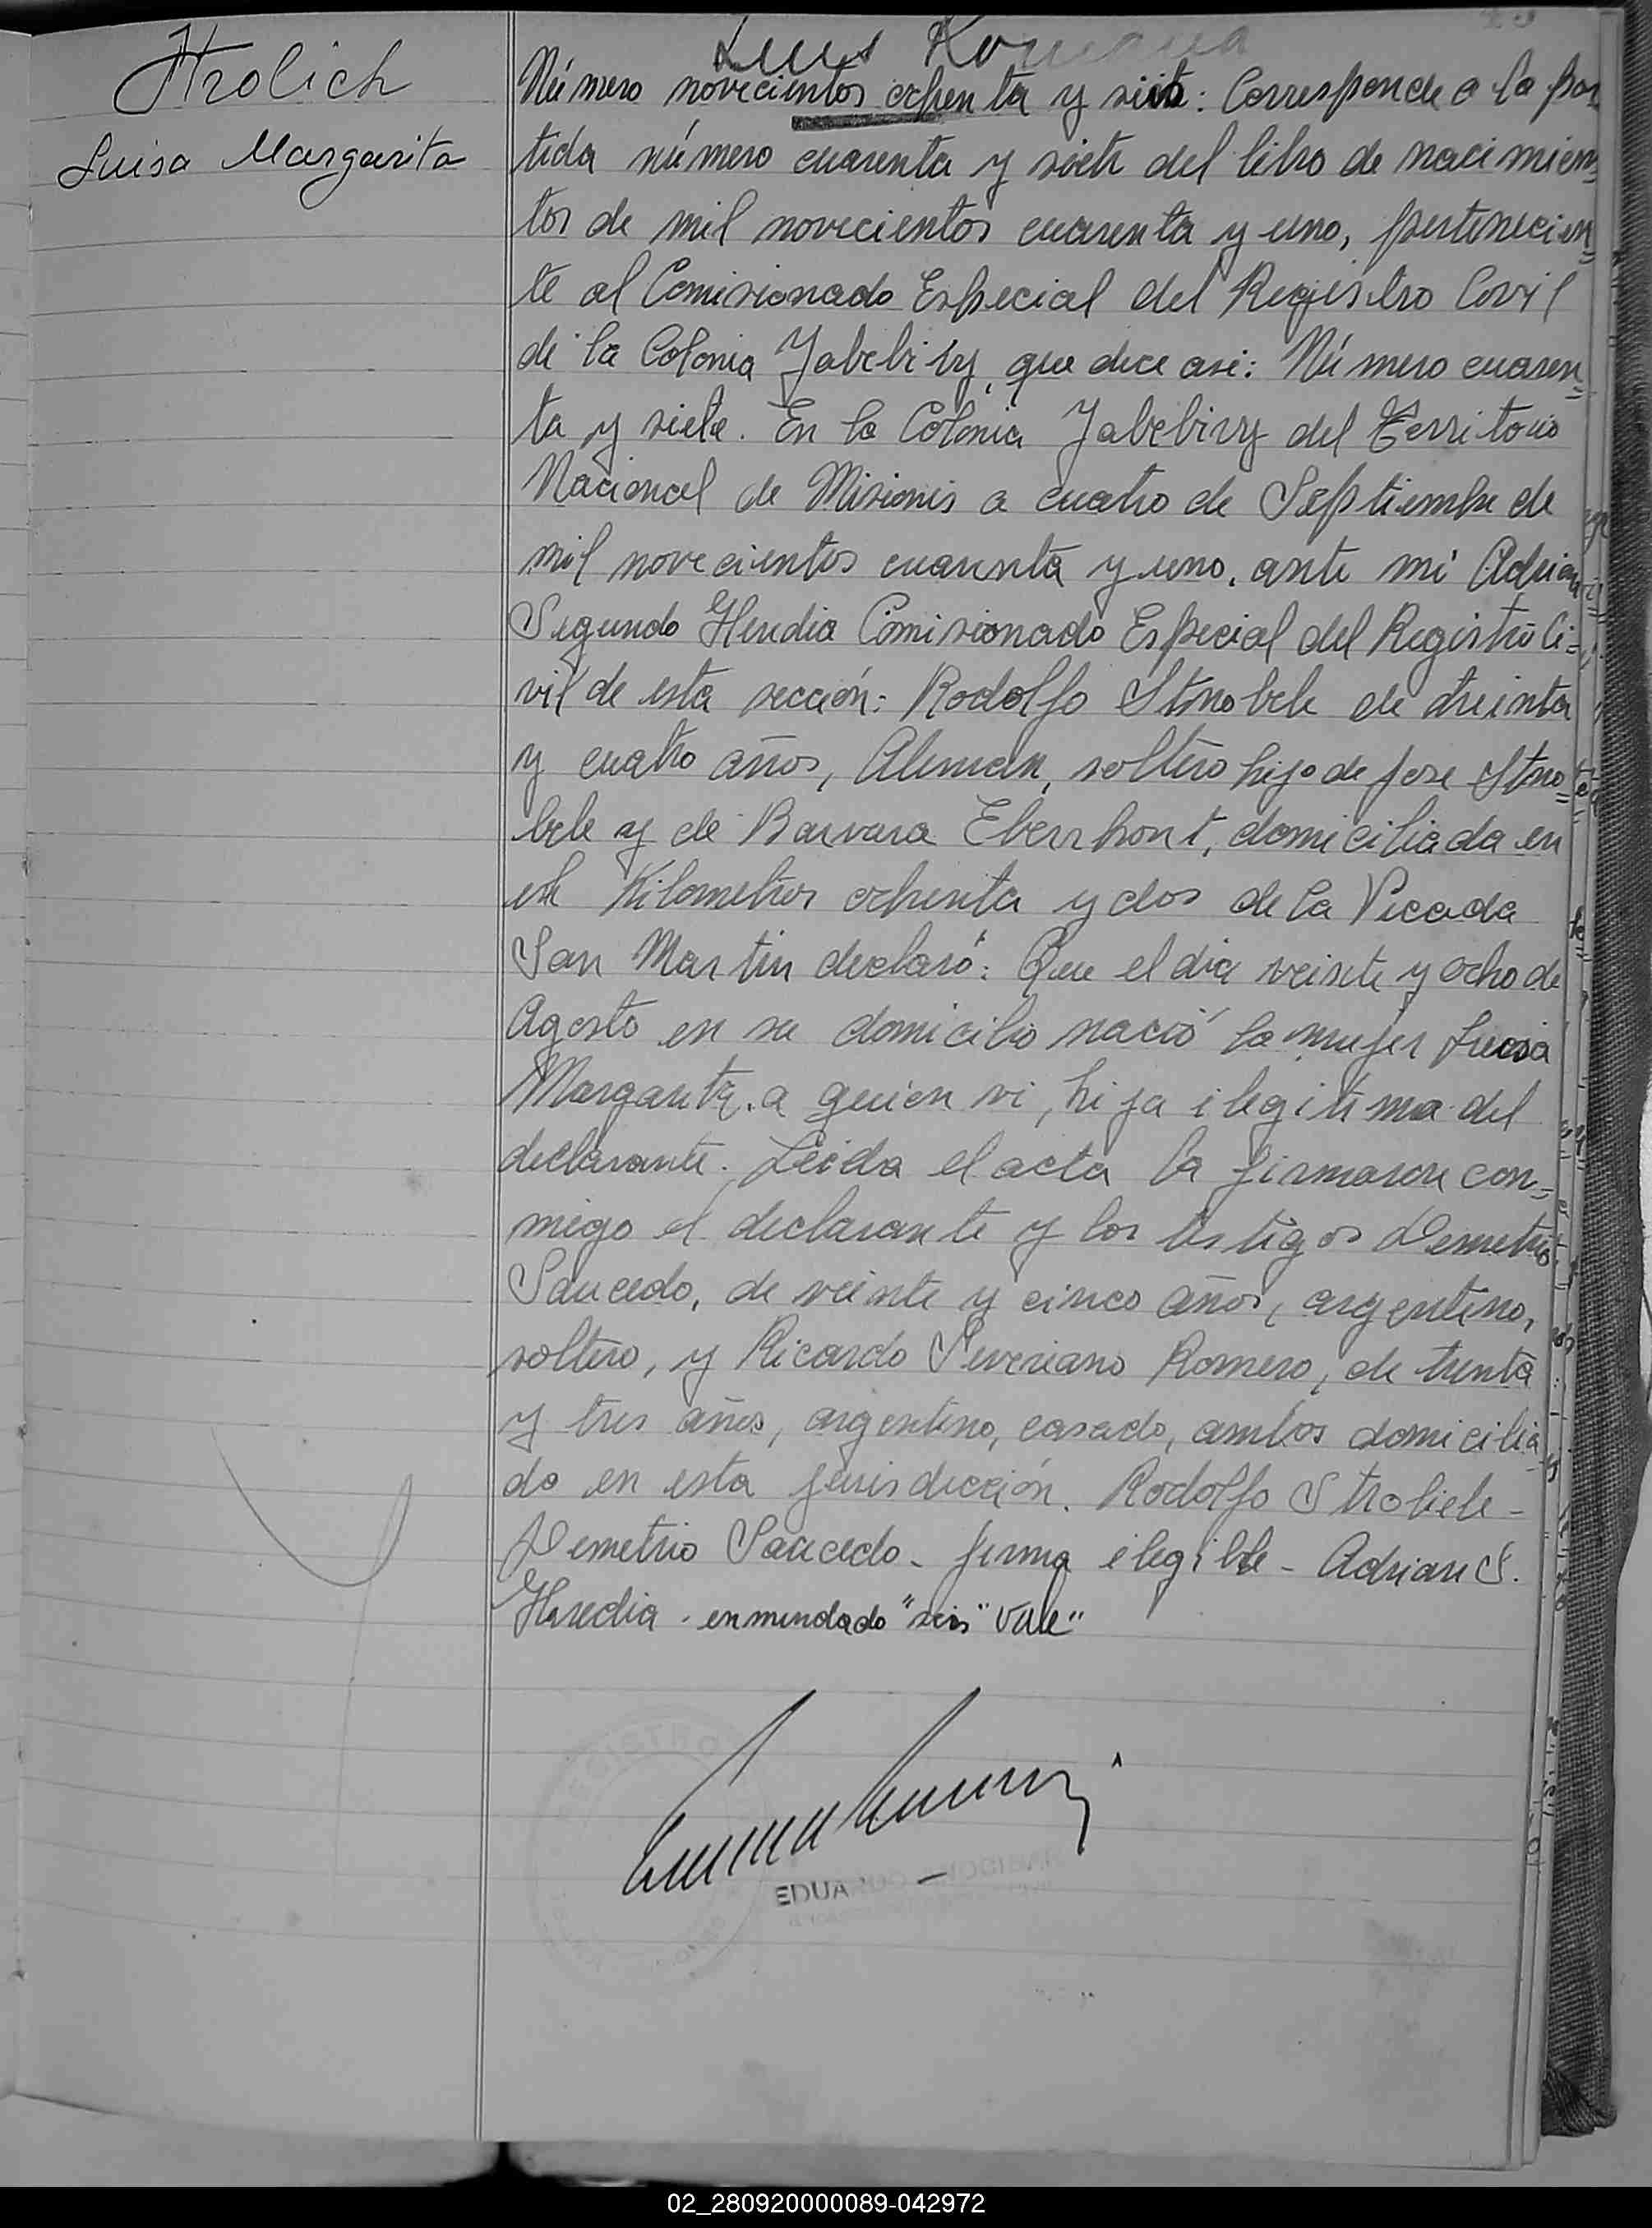 Luis Romana
Frolich
Luisa Margarita
Número novecientos ochenta y seis: Corresponde a la par
tida número cuarenta y siete del libro de nacimien=
tos de mil novecientos cuarenta y uno, pertenecien=
te al Comisionado Especial del Registro Covil
de la Colonia Yabebiry, que dice asi: Número cuaren=
ta y siete. En la Colonia Yabebiry del Territorio
Nacional de Misiones a cuatro de Septiembre de
mil novecientos cuarenta y uno, ante mi Adrian
Segundo Heredia Comisionado Especial del Registro Ci=
vil de esta sección: Rodolfo Strobele de treinta
y cuatro años, Aleman, soltero hijo de Jose Stro=
bele y de Barvara Eberrhont, domiciliada en
el Kilometros ochenta y dos de la Picada
San Martin declaró: Que el dia veinte y ocho de
Agosto en su domicilio nació la mujer Luisa
Margarita. a quien vi, hija ilegitima del
declarante. Leida el acta la firmaron con=
migo el declarante y los testigos Demetrio
Saucedo, de veinte y cinco años, argentino,
soltero, y Ricardo Severiano Romero, de trenta
y tres años, argentino, casado, ambos domicilia
do en esta jurisdicción. Rodolfo Strobele -
Demetrio Saucedo - firma elegible - Adrian S.
Heredia - enmendado "seis" vale"
REGISTRO
EDUARDO
02_280920000089-042972